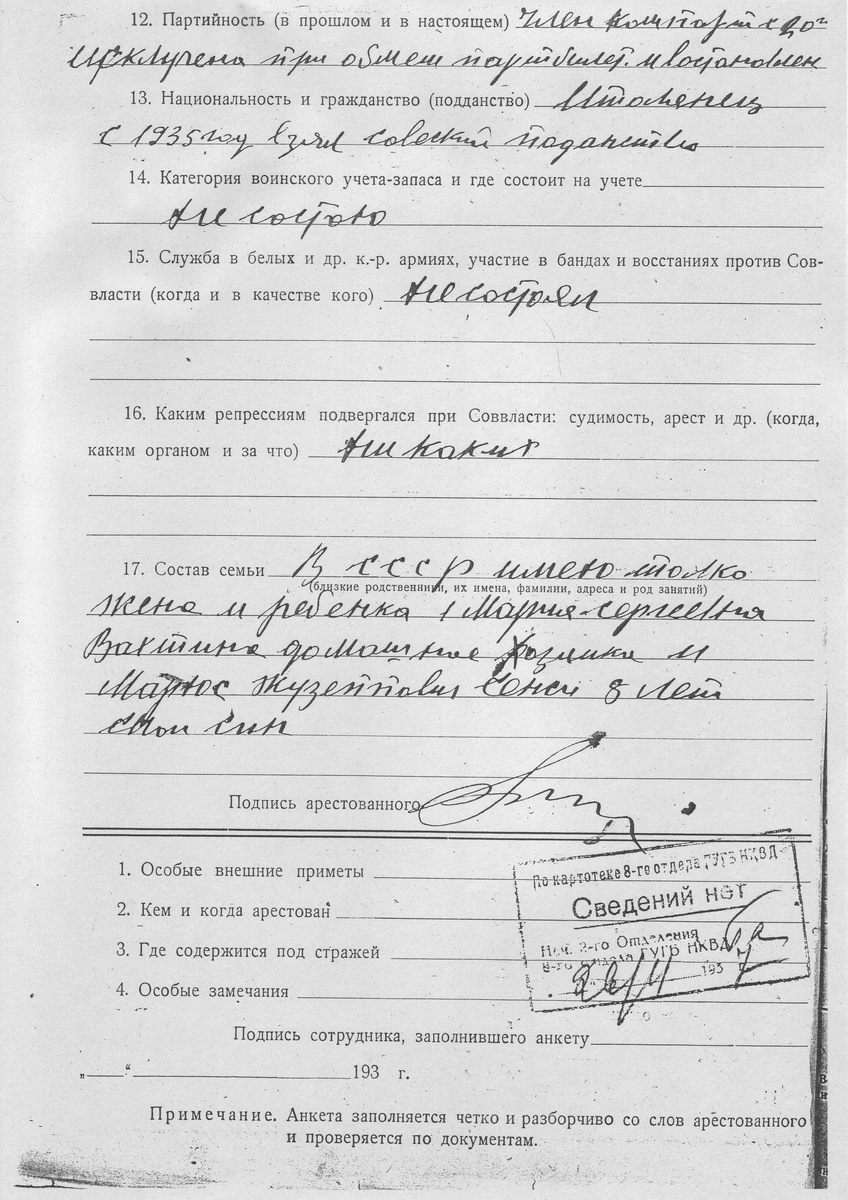 12. Партийность (в прошлом и в настоящем) Член компарт с 20г
Исключена при обмен партбилет. и востановлен
13. Национальность и гражданство (подданство) Итальянец
с 1935 году взял совеский поданство
14. Категория воинского учета-запаса и где состоит на учете
Ни состою
15. Служба в белых и др. к.-р. армиях, участие в бандах и восстаниях против Сов-
власти (когда и в качестве кого) Ни состоял
16. Каким репрессиям подвергался при Соввласти: судимость, арест и др. (когда,
каким органом и за что) Ни каких
17. Состав семьи В СССР имею толко
(близкие родственники, их имена, фамилии, адреса и род занятий)
жена и ребенка Мария Сергеевна
Вахтина домашное хозяика и
Мариос Жузеппович Сенси 8 лет
син
Подпись арестованного
1. Особые внешние приметы
2. Кем и когда арестован
3. Где содержится под стражей
4. Особые замечания
По картотеке 8-го отдела ГУГБ НКВД
Сведений нет
Нач. 2-го Отделения
8-го отдела ГУГБ НКВД
193
Подпись сотрудника, заполнившего анкету
„ “ 193 г.
Примечание. Анкета заполняется четко и разборчиво со слов арестованного
и проверяется по документам.